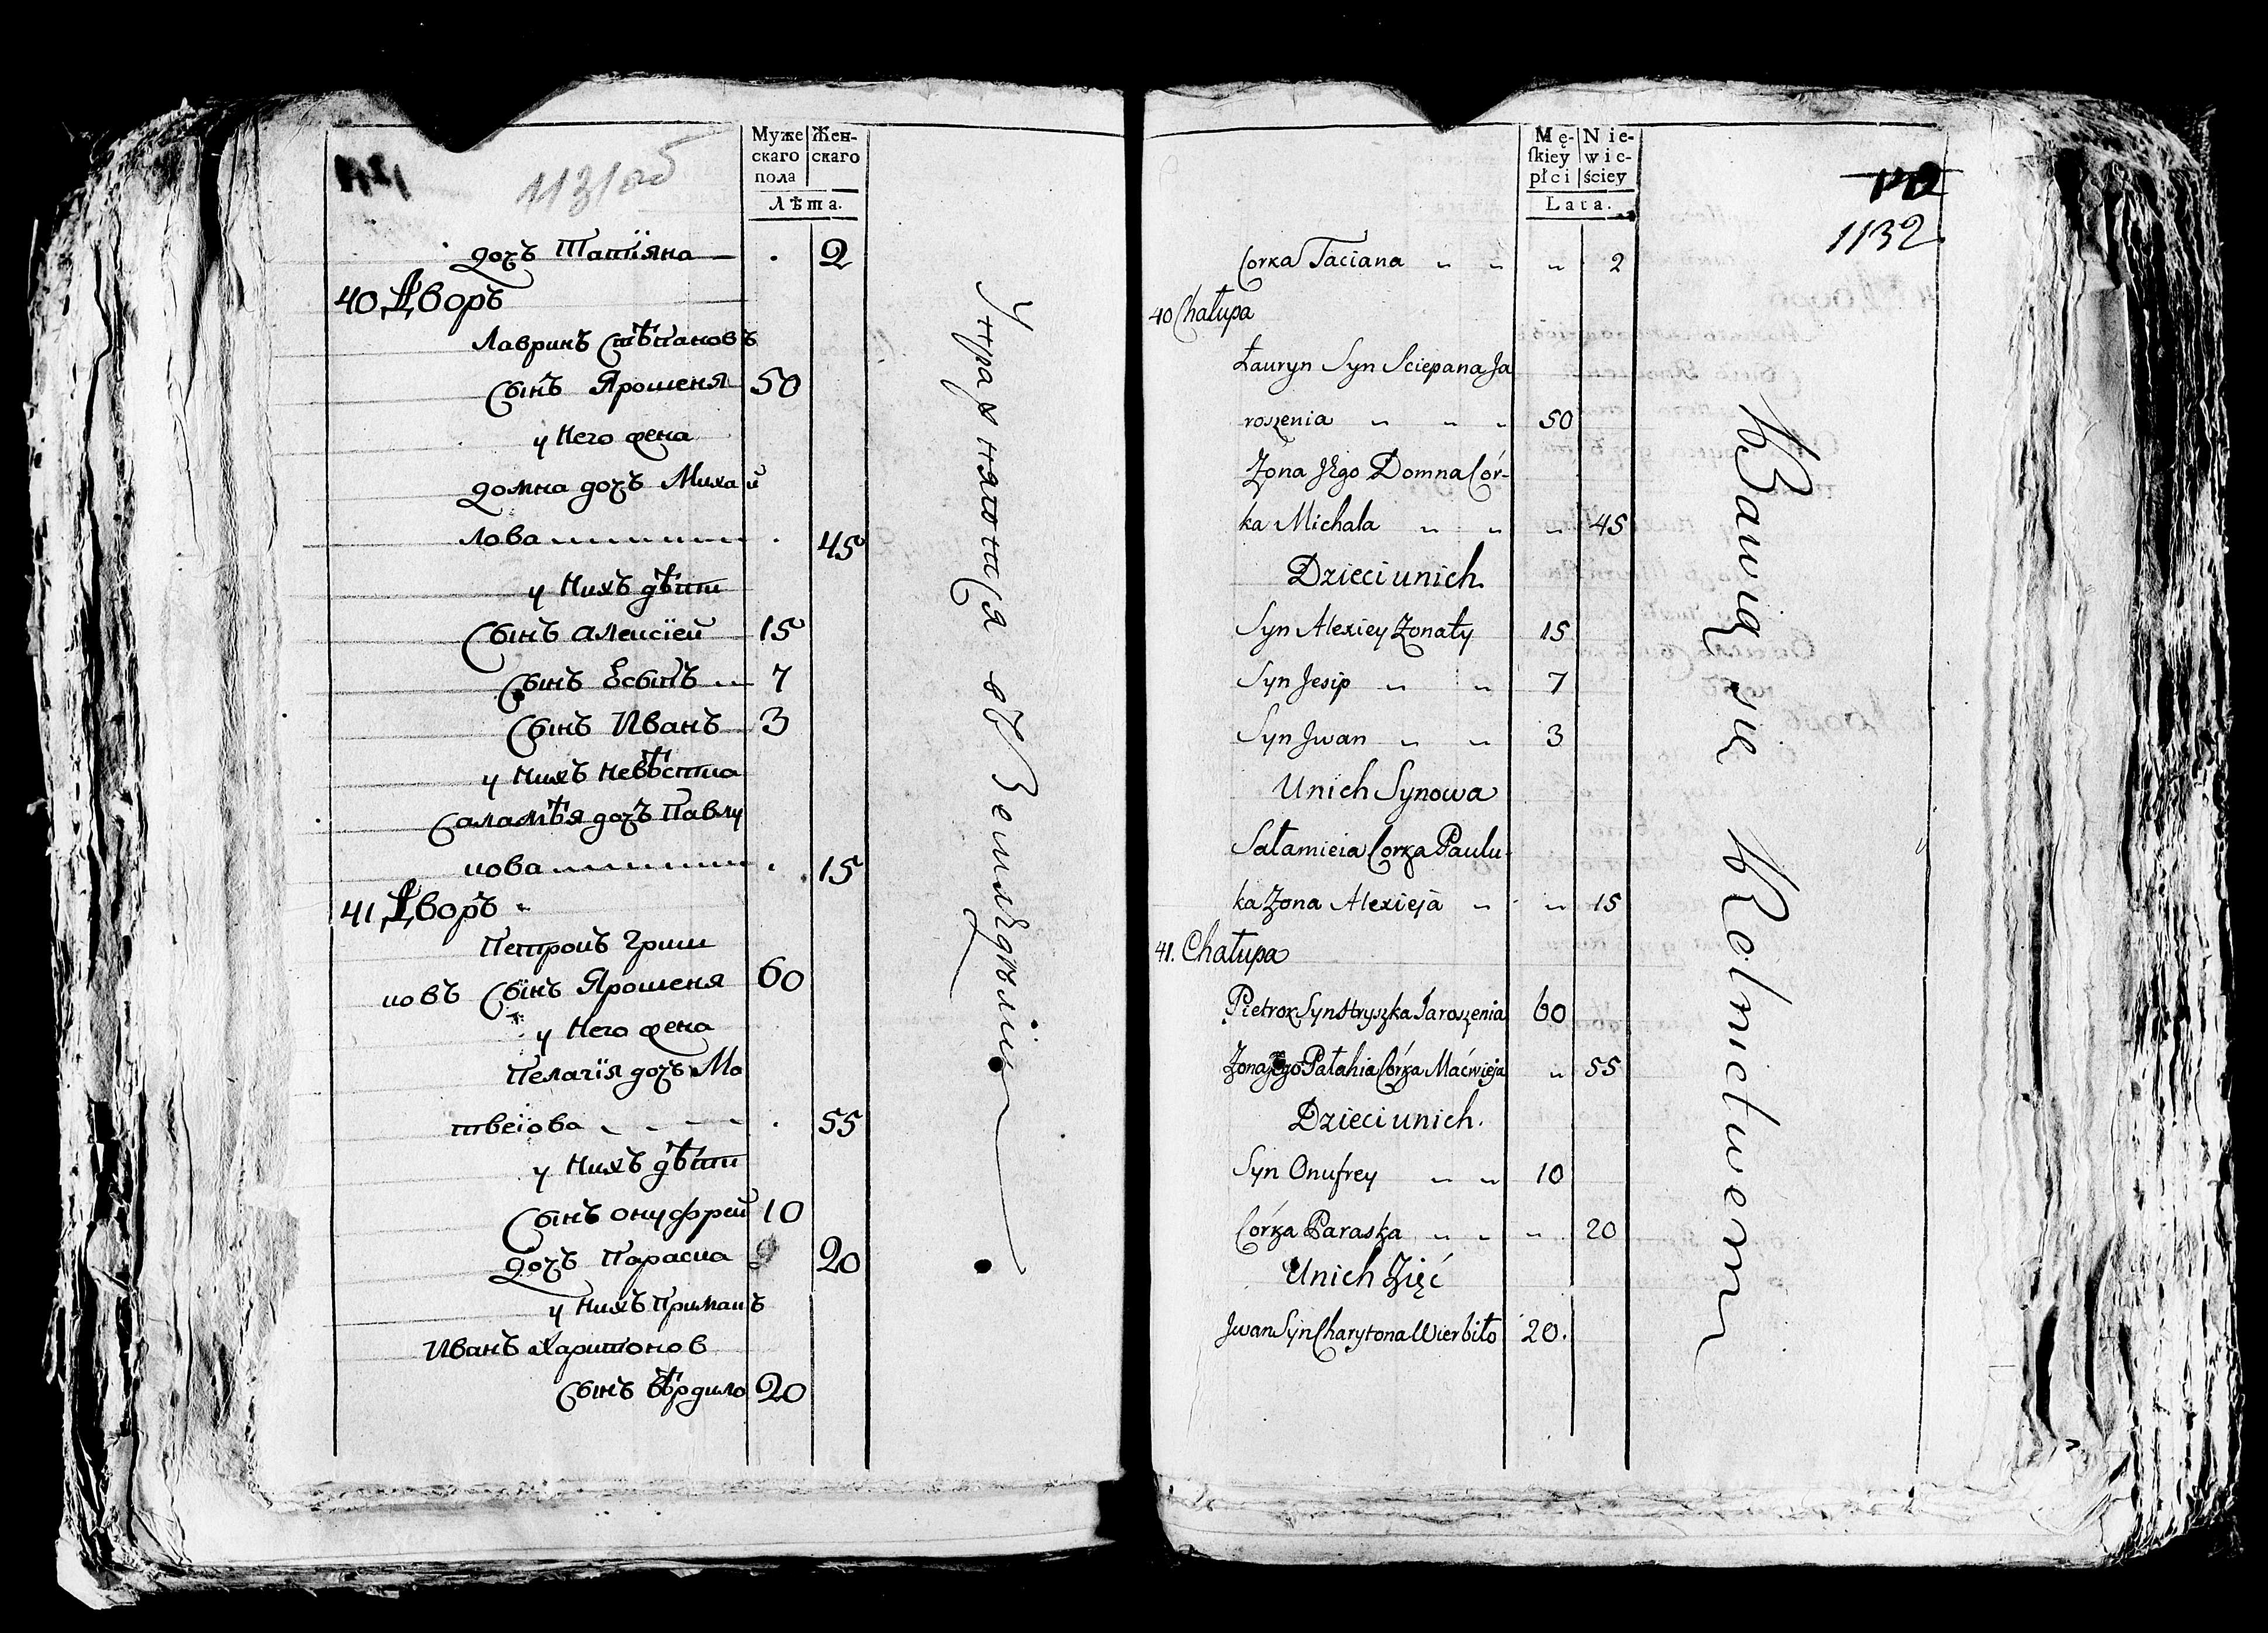 1131об
Муже Жен-
скаго скаго
пола
Лѣта.
дочъ Татïяна . 2
40 Дворъ
Лавринъ Стѣпановъ
сынъ Ярошеня 50
у него жена
домна дочъ Михай
лова . 45
у нихъ дѣти
сынъ алексïей 15
сынъ Есипъ 7
сынъ Иванъ 3
у нихъ невѣстка
Саламѣя дочъ Павлу
кова . 15
41 Дворъ
Петрокъ Гриш
ковъ сынъ Ярошеня 60
у него жена
Пелагïя дочъ Ма
твеïова . 55
у нихъ дѣти
сынъ онуфрей 10
дочъ Параска 20
у нихъ Примакъ
Иванъ Харитонов
сынъ Вѣрбило 20
Упражняются въ Земледѣліи
Mę- Nie-
skiey wie-
płci ściey
Lata.
1132
Corka Taciana „ „ „ 2
40 Chałupa
Łauryn Syn Sciepana Ja
roszenia „ „ „ 50
Zona Jego Domna Cór-
ka Michała „ „ „ 45
Dzieci unich
Syn Alexiey Zonaty 15
Syn Jesip „ „ 7
Syn Jwan „ „ 3
Unich Synowa
Sałamieia Corka Paulu-
ka Zona Alexieja „ „ 15
41. Chałupa
Pietrok Syn Hryszka Jaroszenia 60
Zona Jego Pałahia Córka Maćwieja „ 55
Dzieci unich.
Syn Onufrey „ „ 10
Córka Paraska „ „ „ 20
Unich Zięć
Jwan Syn Charytona Wierbiło 20.
Bawią się Rolnictwem